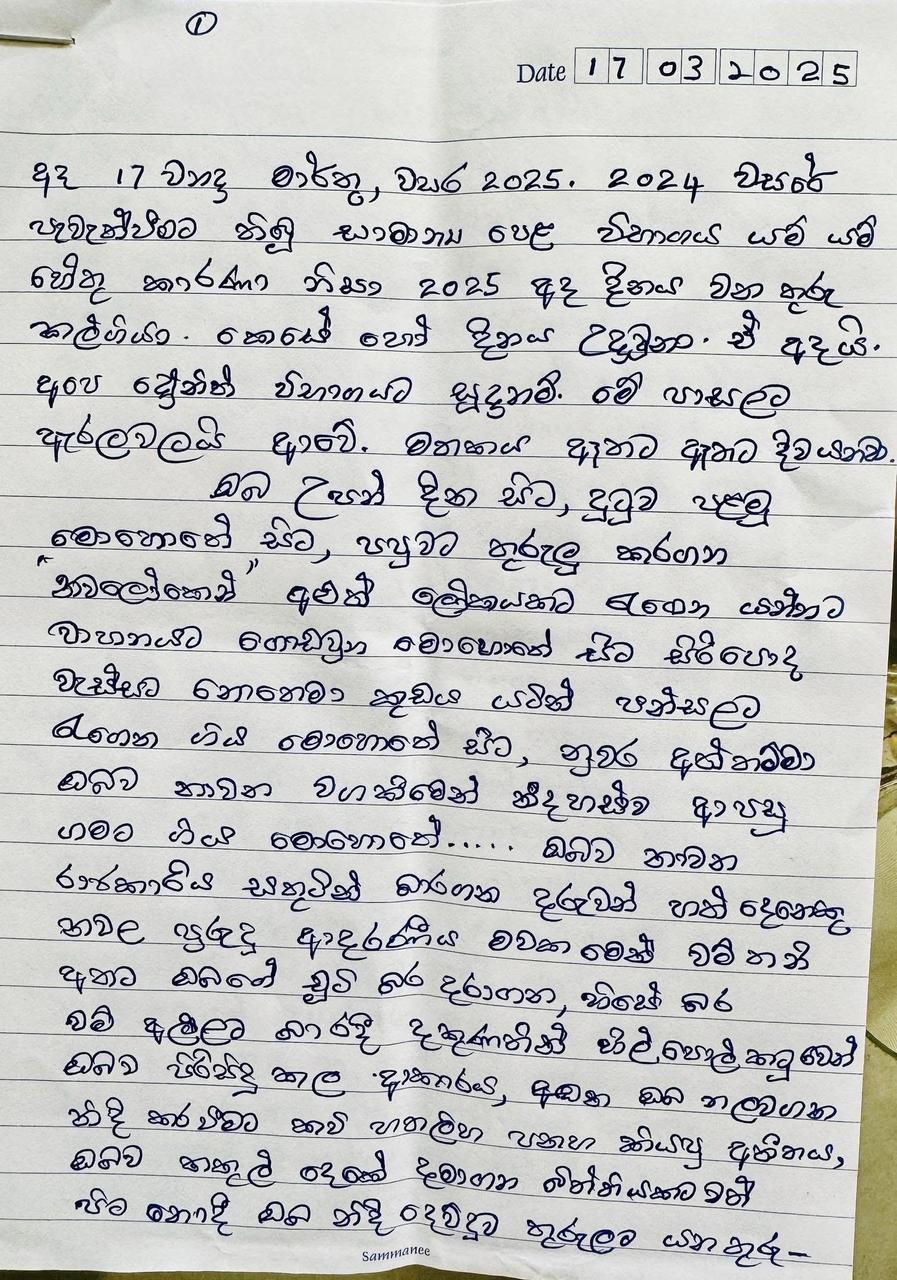 ①
Date 17 03 2025
අද 17 වනදා මාර්තු, වසර 2025. 2024 වසරේ
පැවැත්වීමට තිබූ සාමාන්‍ය පෙළ විභාගය යම් යම්
හේතු කාරණා නිසා 2025 අද දිනය වන තුරු
කල්ගියා. කෙසේ හෝ දිනය උදාවුනා. ඒ අදයි.
අපෙ දෝනිත් විභාගයට සූදානම්. මේ පාසලට
ඇරලවලයි ආවේ. මතකය ඈතට ඈතට දිවයනවා.
ඔබ උපන් දින සිට, දුටුව පළමු
මොහොතේ සිට, පපුවට තුරුලු කරගන
"නවලෝකෙන්" අළුත් ලෝකයකට රැගෙන යන්නට
වාහනයට ගොඩවුන මොහොතේ සිට සිරිපොද
වැස්සට නොතෙමා කුඩය යටින් පන්සලට
රැගෙන ගිය මොහොතේ සිට, නුවර අත්තම්මා
ඔබව නාවන වගකීමෙන් නිදහස්ව ආපසු
ගමට ගිය මොහොතේ..... ඔබව නාවන
රාජකාරිය සතුටින් බාරගන දරුවන් හත් දෙනෙකු
නවල පුරුදු ආදරණීය මවක මෙන් වම් තනි
අතට ඔබගේ චූටි බර දරාගන, හිසේ බර
වම් අල්ලට බාරදී දකුණතින්
ඔබව පිරිසිදු කල ආකාරය, අඬන ඔබ නලවගන
නිදි කරවීමට කවි හතලිහ පනහ කියපු අතීතය,
ඔබව කකුල් දෙකේ දමාගන බිත්තියකටවත්
පිට නොදී ඔබ නිදි දෙව්දුව තුරුලට යන තුරු–
Sammanee